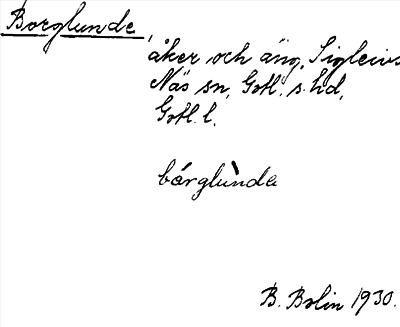 Borglunde,
åker och äng, Sigleivs
Näs sn, Gotl. s. hd,
Gotl. l.
bórglùnda
B. Bolin 1930.